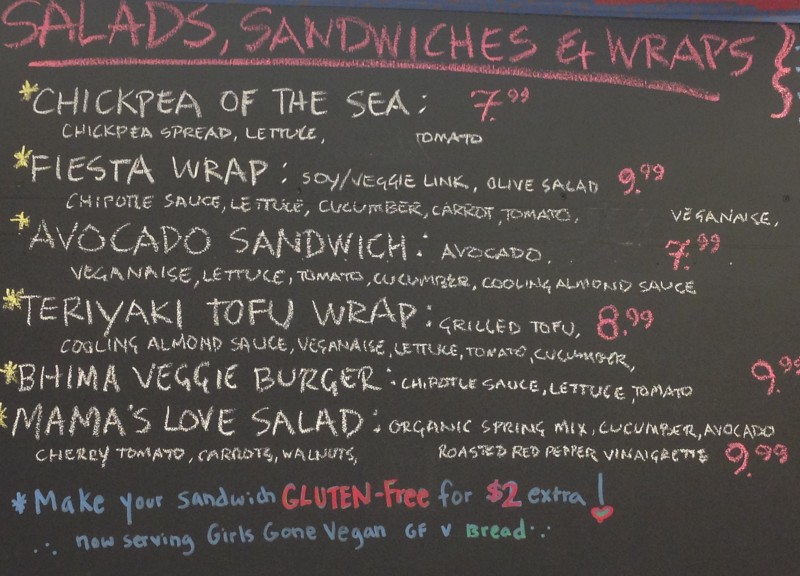 SALADS, SANDWICHES & WRAPS
*CHICKPEA OF THE SEA: 7.99
CHICKPEA SPREAD, LETTUCE, TOMATO
*FIESTA WRAP: SOY/VEGGIE LINK, OLIVE SALAD 9.99
CHIPOTLE SAUCE, LETTUCE, CUCUMBER, CARROT, TOMATO, VEGANAISE,
*AVOCADO SANDWICH: AVOCADO, 7.99
VEGANAISE, LETTUCE, TOMATO, CUCUMBER, COOLING ALMOND SAUCE
*TERIYAKI TOFU WRAP: GRILLED TOFU, 8.99
COOLING ALMOND SAUCE, VEGANAISE, LETTUCE, TOMATO, CUCUMBER,
*BHIMA VEGGIE BURGER: CHIPOTLE SAUCE, LETTUCE, TOMATO 9.99
*MAMA'S LOVE SALAD: ORGANIC SPRING MIX, CUCUMBER, AVOCADO
CHERRY TOMATO, CARROTS, WALNUTS, ROASTED RED PEPPER VINAIGRETTE 9.99
*Make your sandwich GLUTEN-Free for $2 extra!
now serving Girls Gone Vegan GF V Bread